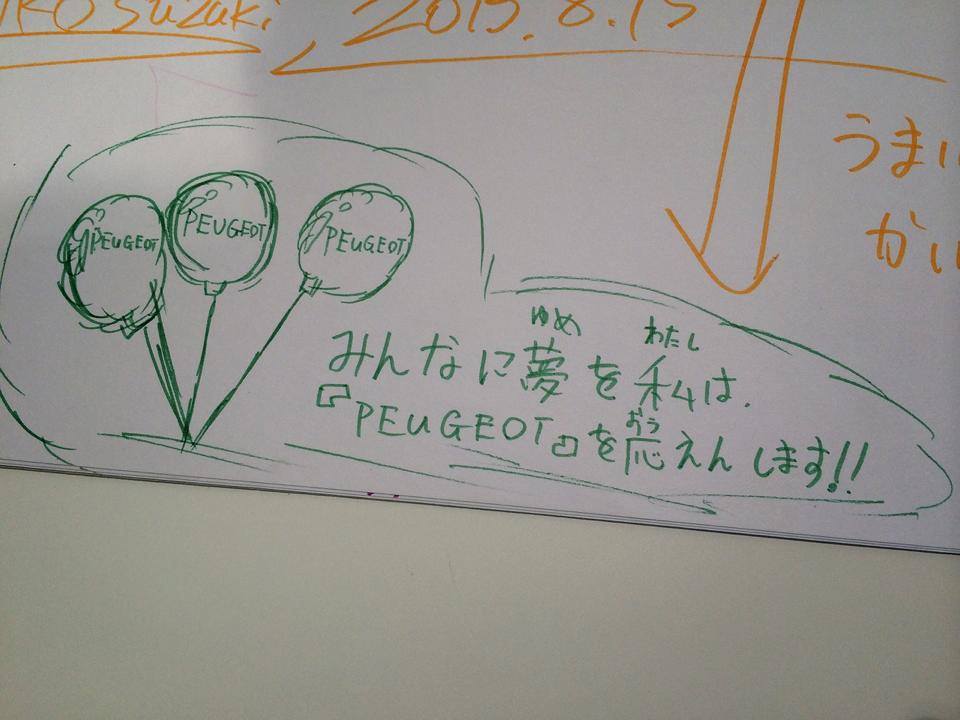 Suzuki 2015.8.15
うまい
かい
PEUGEOT PEUGEOT PEUGEOT
ゆめ わたし
みんなに夢を私は、
おう
『PEUGEOT』を応えんします!!